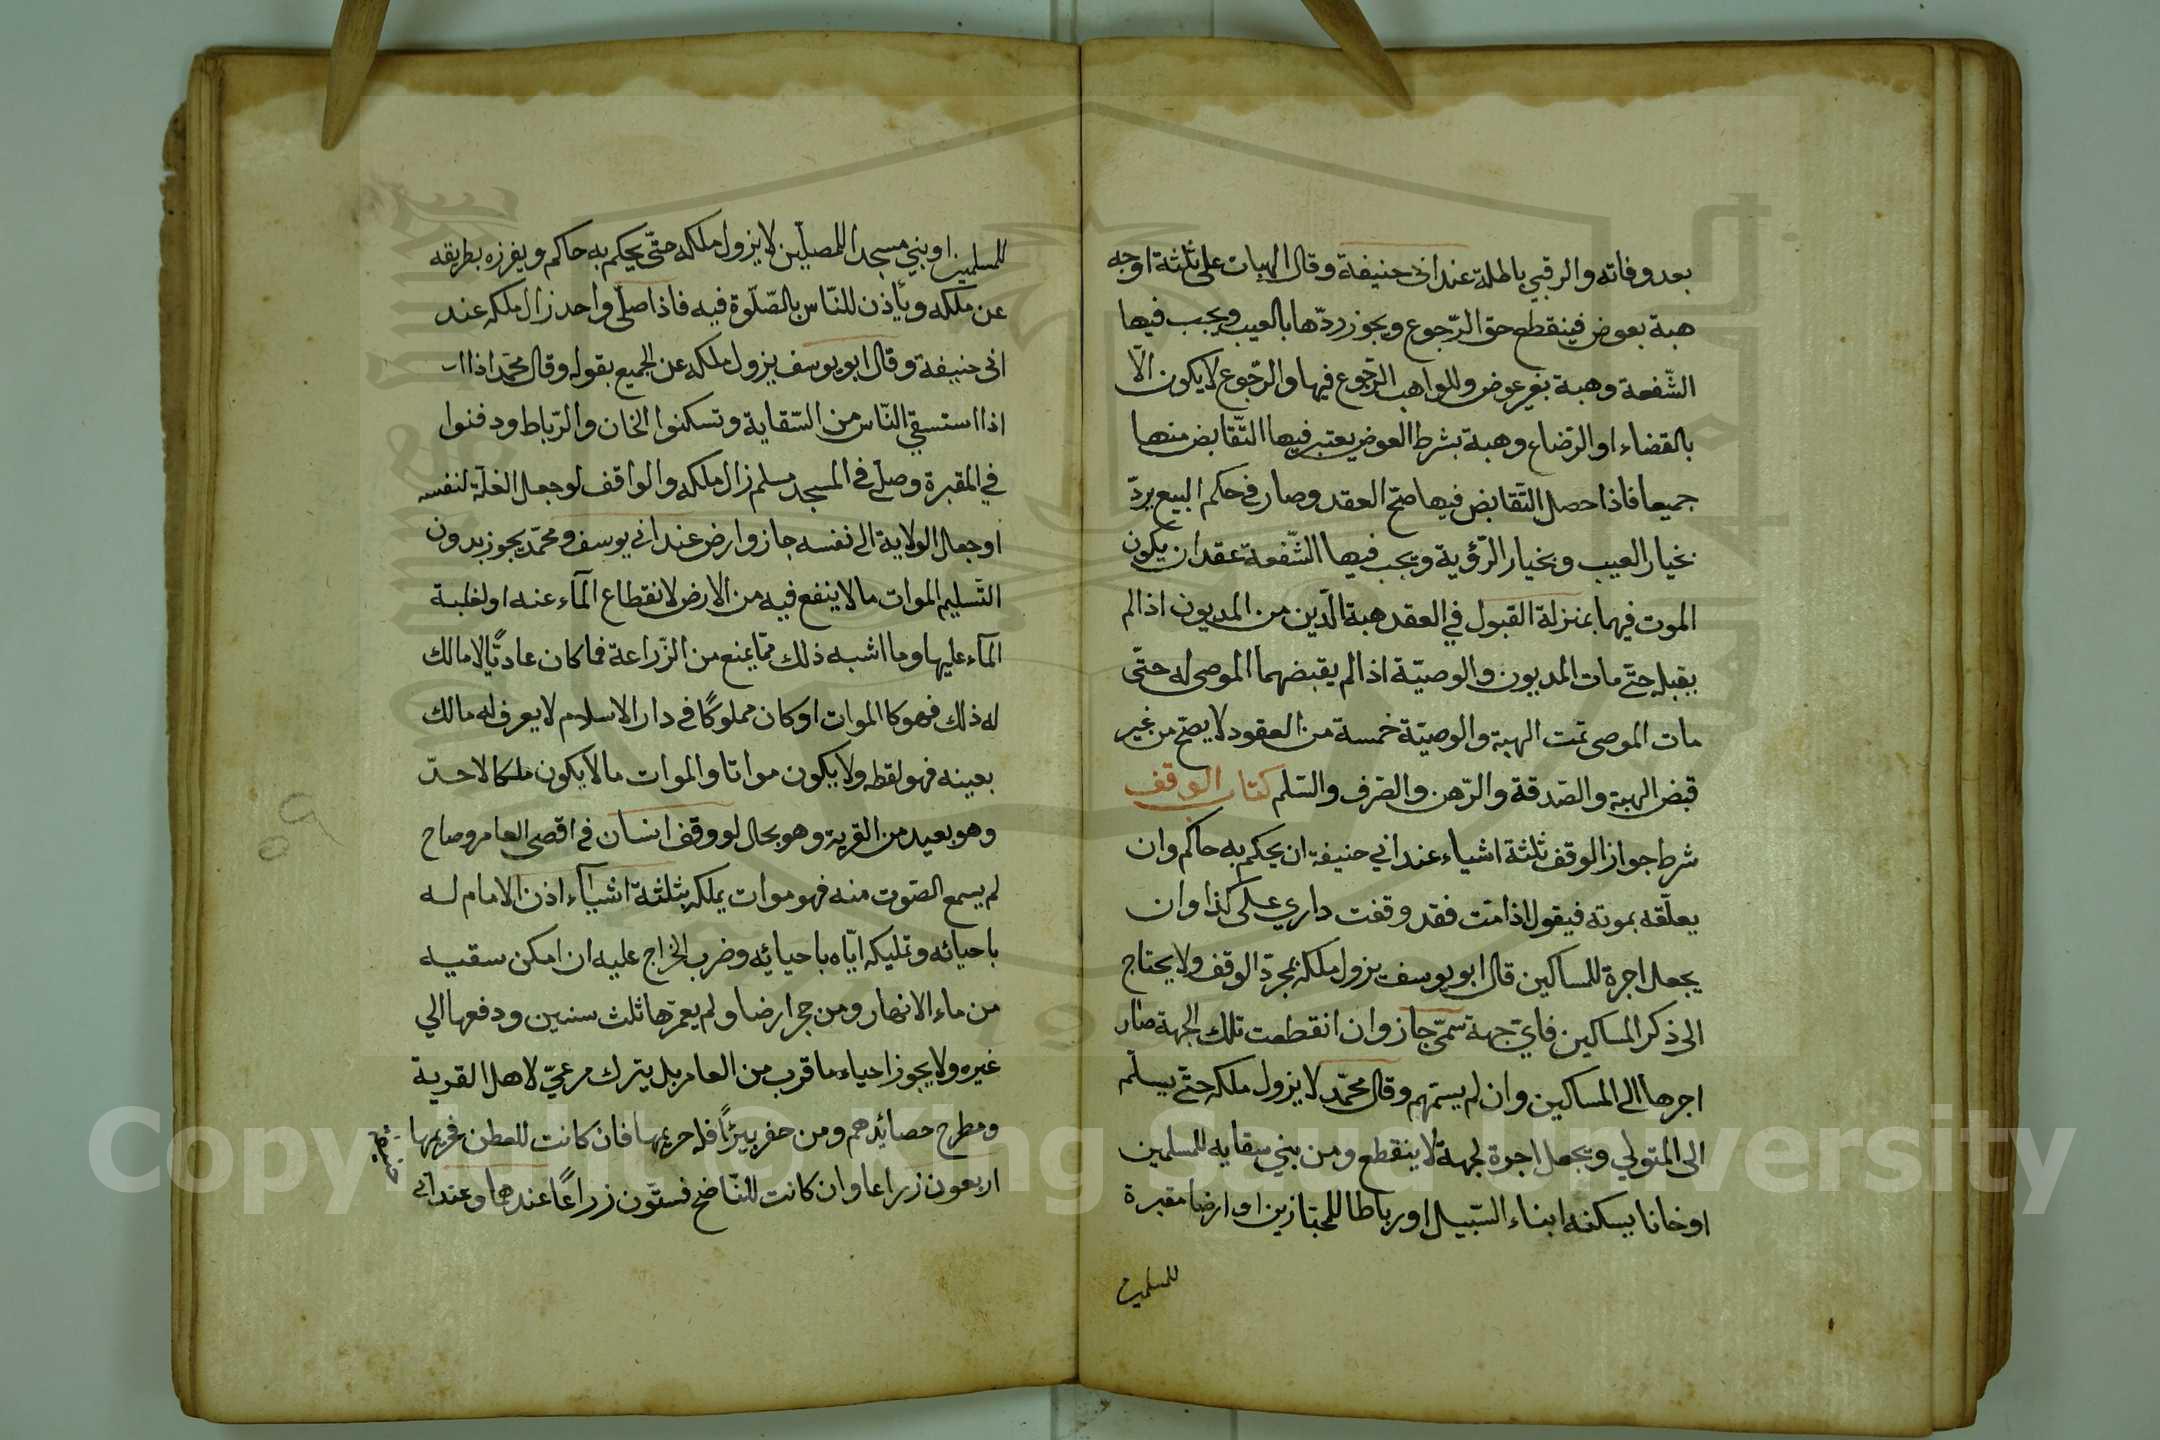 بعد وفاته والرقبي باطلة عند ابي حنيفة وقال الهبات على ثلثة اوجه
هبة بعوض فينقطع حق الرّجوع ويجوز ردّها بالعيب ويجب فيها
الشّفعة وهبة بغير عوض وللواهب الرّجوع فيها والرّجوع لا يكون الّا
بالقضاء او الرضاء وهبة بشرط العوض يعتبر فيها التّقابض منها
جميعا فاذا حصل التّقابض فيها صحّ العقد وصار في حكم البيع يردّ
بخيار العيب وبخيار الرّؤية ويجب فيها الشّفعة عقد ان يكون
الموت فيهما بمنزلة القبول في العقد هبة الدّين من المديون اذا لم
يقبله حتّى مات المديون والوصيّة اذا لم يقبضهما الموصى له حتّى
مات الموصى تمت الهبة والوصيّة خمسة من العقود لا يصحّ من غير
قبض الهبة والصّدقة والرّهن والصّرف والسّلم كتاب الوقف
شرط جواز الوقف ثلثة اشياء عند ابي حنيفة ان يحكم به حاكم وان
يعلّقه بموته فيقول اذا متّ فقد وقفت داري على كذا وان
يجعل اجرة للمساكين قال ابو يوسف يزول ملكه بمجرّد الوقف ولا يحتاج
الى ذكر المساكين فايّ جهة سمّى جاز وان انقطعت تلك الجهة صار
اجرها الى المساكين وان لم يسمّهم وقال محمّد لا يزول ملكه حتّى يسلّم
الى المتولي ويجعل اجرة لجهة لا ينقطع ومن بني سقايه للمسلمين
او خانا يسكنه ابناء السّبيل او رباطا للمجتازين او ارضا مقبرة
للمسلمين
للمسلمين او بني مسجدا للمصلّين لا يزول ملكه حتّى يحكم به حاكم ويفرزه بطريقه
عن ملكه ويأذن للنّاس بالصّلوة فيه فاذا صلّى واحد زال ملكه عند
ابي حنيفة وقال ابو يوسف يزول ملكه عن الجميع بقوله وقال محمّد اذا
اذا استسقي النّاس من السّقاية وتسكنوا الخان والرّباط ودفنوا
في المقبرة وصلّى في المسجد مسلم زال ملكه والواقف لو جعل الغلّة لنفسه
او جعل الولاية الى نفسه جاز وارض عند ابي يوسف ومحمّد يجوز بدون
التّسليم الموات ما لا ينفع فيه من الارض لانقطاع المآء عنه او لغلبة
المآء عليها وما اشبه ذلك ممّا يمنع من الزّراعة فما كان عاديًّا لا مالك
له ذلك فهو كالموات او كان مملوكًا في دار الاسلام لا يعرف له مالك
بعينه فهو لقطه ولا يكون مواتا والموات ما لا يكون ملكا لاحدّ
وهو بعيد من القرية وهو بحال لو وقف انسان في اقصى العامر وصاح
لم يسمع الصّوت منه فهو موات يملكه بثلثة اشيآء اذن الامام له
باحيائه وتمليكه ايّاه باحيائه وضرب الخراج عليه ان امكن سقيه
من ماء الانهار ومن حجر ارضا ولم يعمّرها ثلث سنين ودفعها الي
غيره ولا يجوز احياء ما قرب من العامر بل يترك مرعيّ لاهل القرية
ومطرح حصائدهم ومن حفر بيرًا فله حريمها فان كانت للعطن فحريمها
اربعون زراعا وان كانت للنّاضح فستّون زراعًا عندها وعند ابي
Copyright © King Saud University